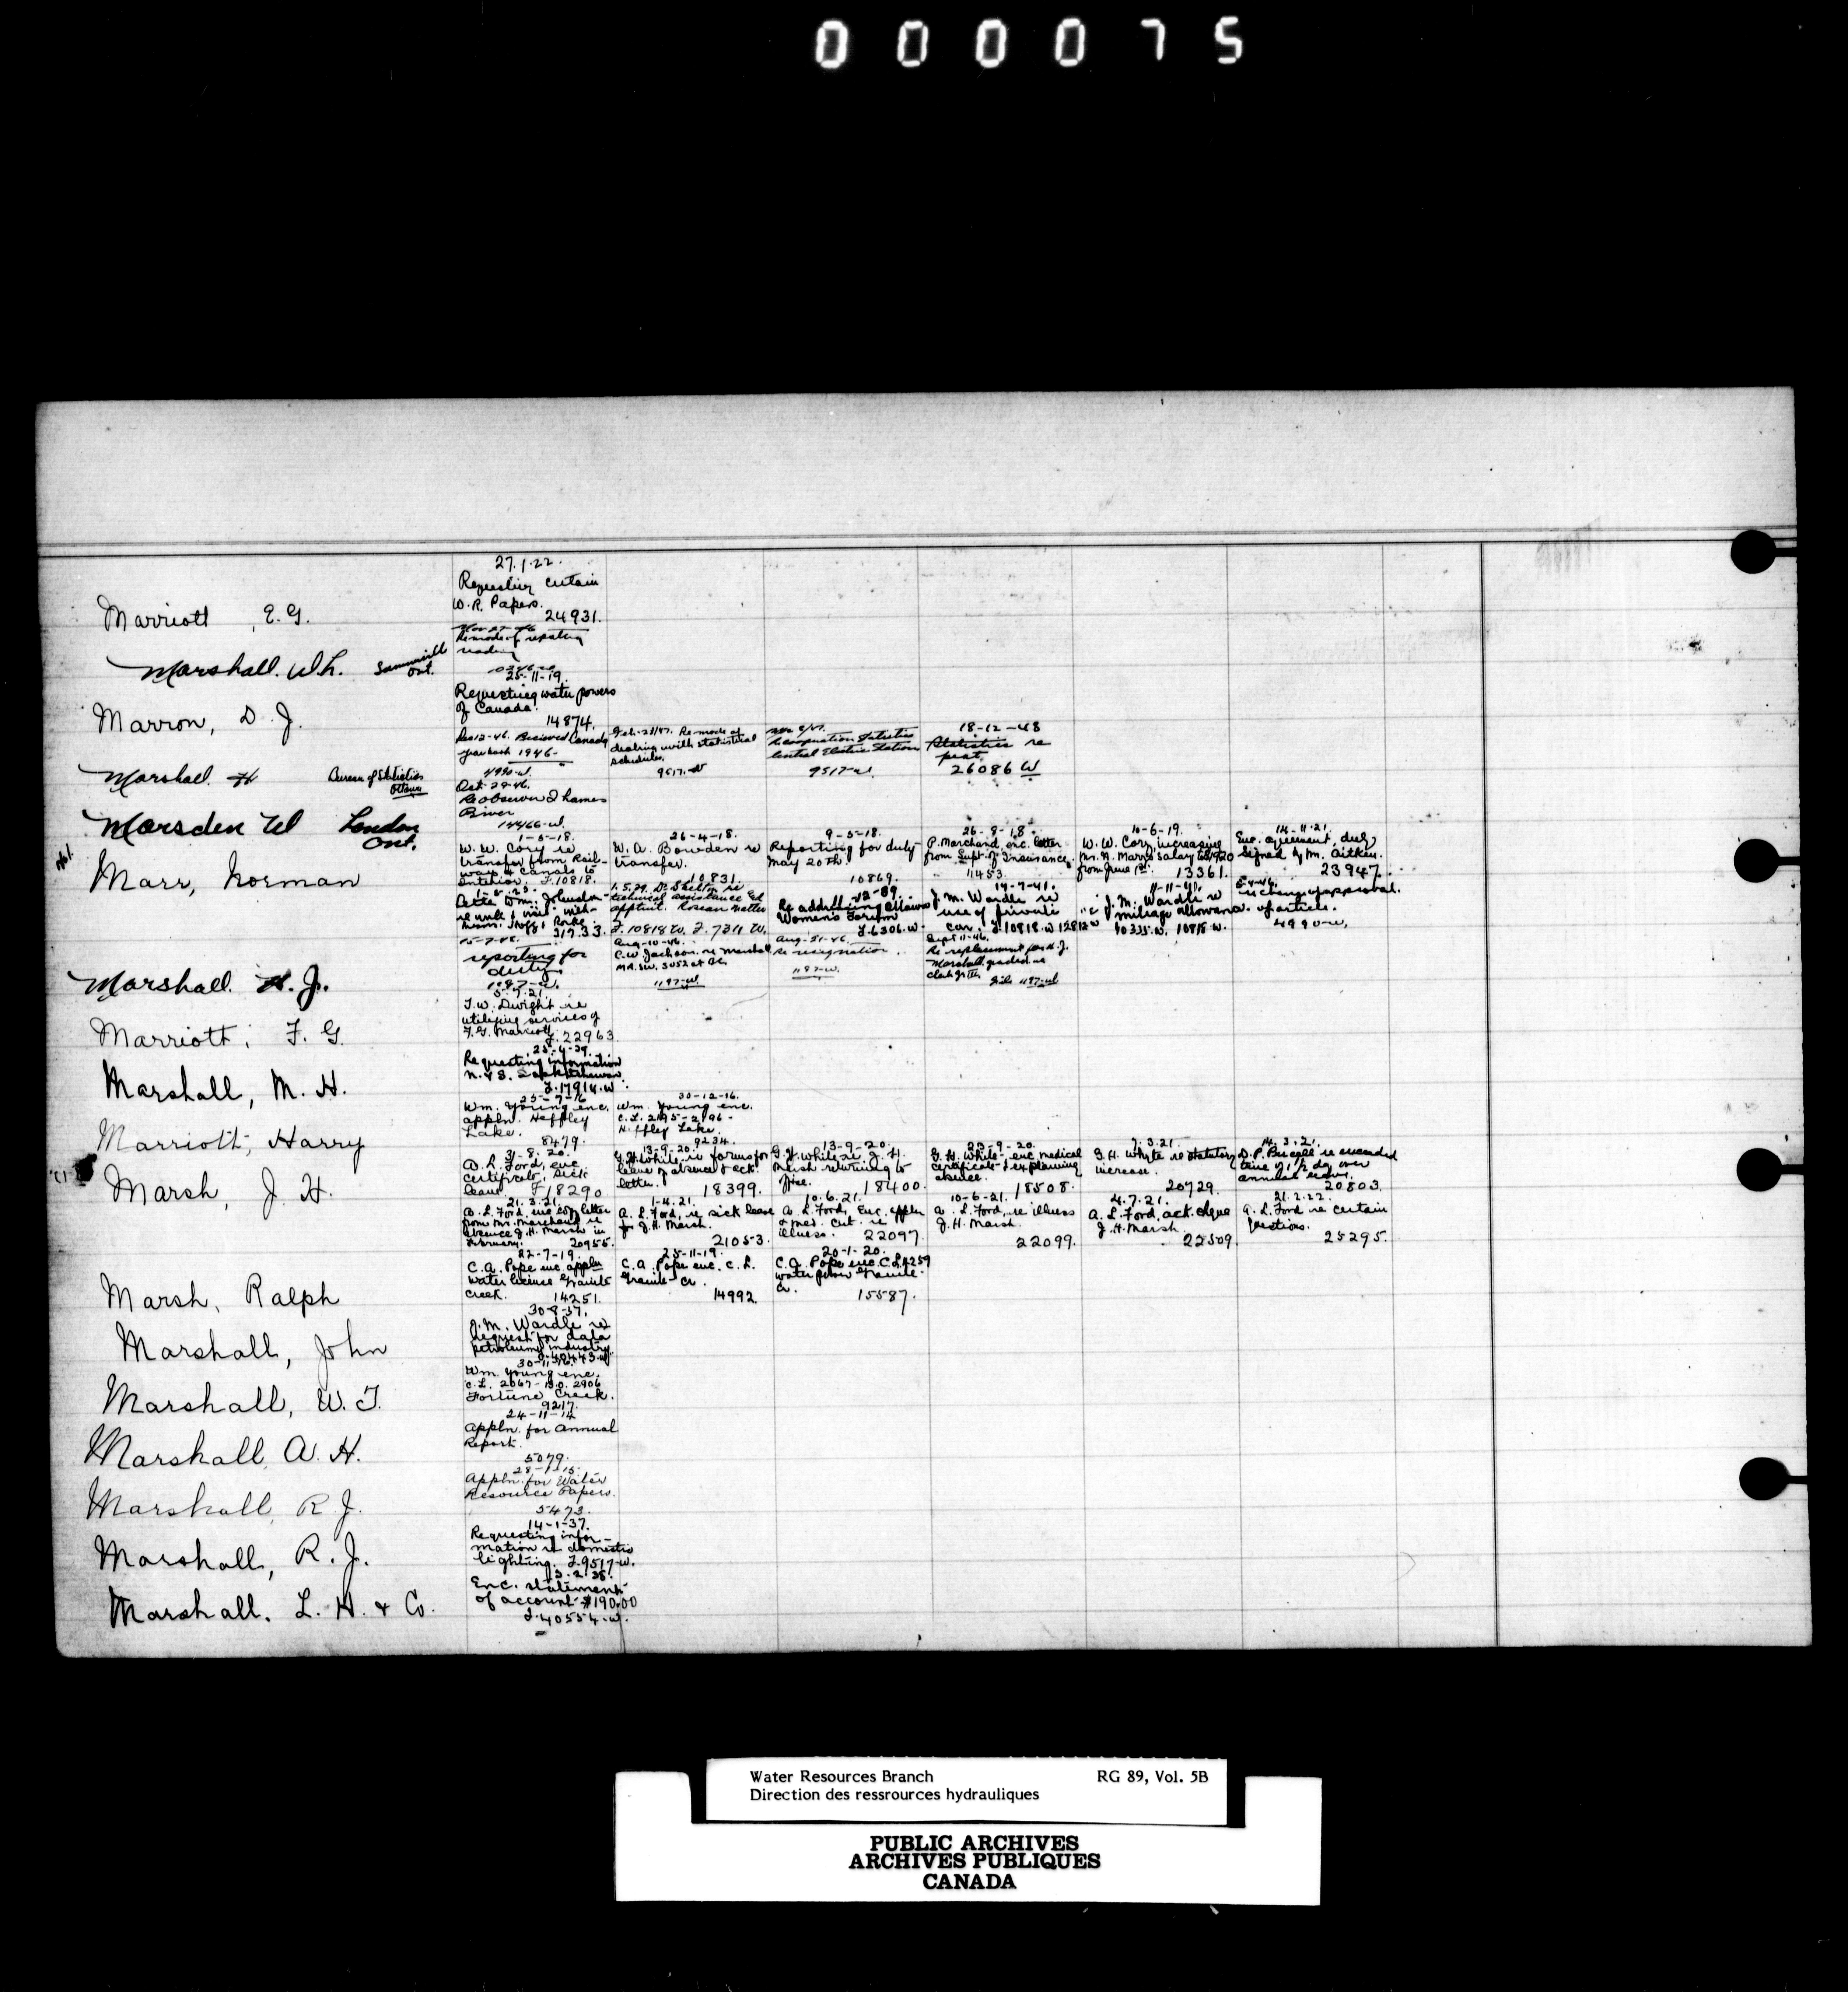 000075
27.1.22.
Requesting certain
W.R. Papers.
24931.
Marriott, E.G.
Re mode of
reading
Marshall. W.L.
Ont.
25-11-19.
Requesting water powers
of Canada.
14874.
Marron, D. J.
Dec 12-46. Received Canada
year book 1946-
4990-W.
Re mode of
dealing with statistical
schedules.
9517-W
Central Electric Station
9517-W.
18-12-48
Statistics re
26086 W
Marshall H
Bureau of Statistics
Ottawa
Oct-29-46.
Re observer Thames
River
14466-W.
Marsden W London
Ont.
1-5-18.
W. W. Cory re
transfer from Rail-
ways & Canals to
Interior. F.10818.
26-4-18.
W. A. Bowden re
transfer.
10831.
9-5-18.
Reporting for duty
May 20th.
10869.
26-8-18.
P. Marchand, enc. letter
from Supt. of Insurance.
11453.
10-6-19.
W. W. Cory, increasing
Mr. N. Marr's salary to $1920
from June 1st.
13361.
14-11-21.
Enc. agreement, duly
signed by M. Aitken.
23947.
Marr, Norman
technical assistance
F.10818 W. F.7311 W.
Women's Forum
F.6306.W.
14-7-41.
J. M. Wardle re
use of private
car. F.10818.W
11-11-41.
J. M. Wardle re
mileage allowance.
10818.W.
re change of approval
of article.
4990-W.
15-7-46.
reporting for
duty
1187-W.
Aug-10-46.
C.W. Jackson re Marshall
1197-W
Aug-31-46.
Re resignation.
1187-W.
Sept 11-46.
Re replacement for H.J.
Marshall
1187-W
Marshall H. J.
5.7.21
T.W. Dwight re
utilizing services of
F.G. Marriott
F.22963
Marriott, F. G.
25-4-39.
Requesting information
N. & S. Saskatchewan
F.17914.W.
Marshall, M. H.
25-7-16
Wm. Young enc.
appln. Heffley
Lake.
8479.
30-12-16.
Wm. Young enc.
C.L. 2195-2196-
Heffley Lake.
9234.
Marriott, Harry
31-8-20.
A. L. Ford, enc
certificate, sick
leave
F18290
13-9-20
G.H. White re forms for
leave of absence & ack.
letter.
18399.
13-9-20.
G.H. White re J. H.
Marsh returning to
office.
18400.
23-9-20.
G. H. White enc medical
certificate & explaining
absence.
18508.
7.3.21.
G. H. Whyte re statutory
increase.
20729.
14.3.21.
annual leave.
20803.
Marsh, J. H.
21.3.21.
A. L. Ford, enc copy letter
from Mr. Marchand re
absence J.H. Marsh in
February.
20955.
1-4-21.
A. L. Ford, re sick leave
for J. H. Marsh.
21053.
10.6.21.
A. L. Ford, Enc. appln
& med. cert. re
illness.
22097.
10-6-21.
A. L. Ford, re illness
J. H. Marsh.
22099.
4.7.21.
A. L. Ford, ack. cheque
J. H. Marsh.
22509.
21.2.22.
A. L. Ford re certain
questions.
25295.
22-7-19.
C. A. Pope enc. appln
water licence Granite
Creek.
14251.
25-11-19.
C. A. Pope enc. C. L.
Granite Cr.
14992.
20-1-20.
C. A. Pope enc. C.L.4259
water power Granite
Cr.
15587.
Marsh, Ralph
30-8-37.
J. M. Wardle re
request for data
petroleum industry
Marshall, John
Wm. Young enc.
C.L. 2067-P.O. 2906
Fortune Creek.
9217.
Marshall, W. T.
24-11-14
Appln. for Annual
Report.
5079.
Marshall, A. H.
28-1-15.
Appln. for Water
Resource Papers.
5473.
Marshall, R J.
14-1-37.
Requesting infor-
mation re domestic
lighting. F.9517-W.
Marshall, R. J.
Enc. statement
of account $190.00
F.40554-W.
Marshall, L. H. & Co.
Water Resources Branch RG 89, Vol. 5B
Direction des ressrources hydrauliques
PUBLIC ARCHIVES
ARCHIVES PUBLIQUES
CANADA